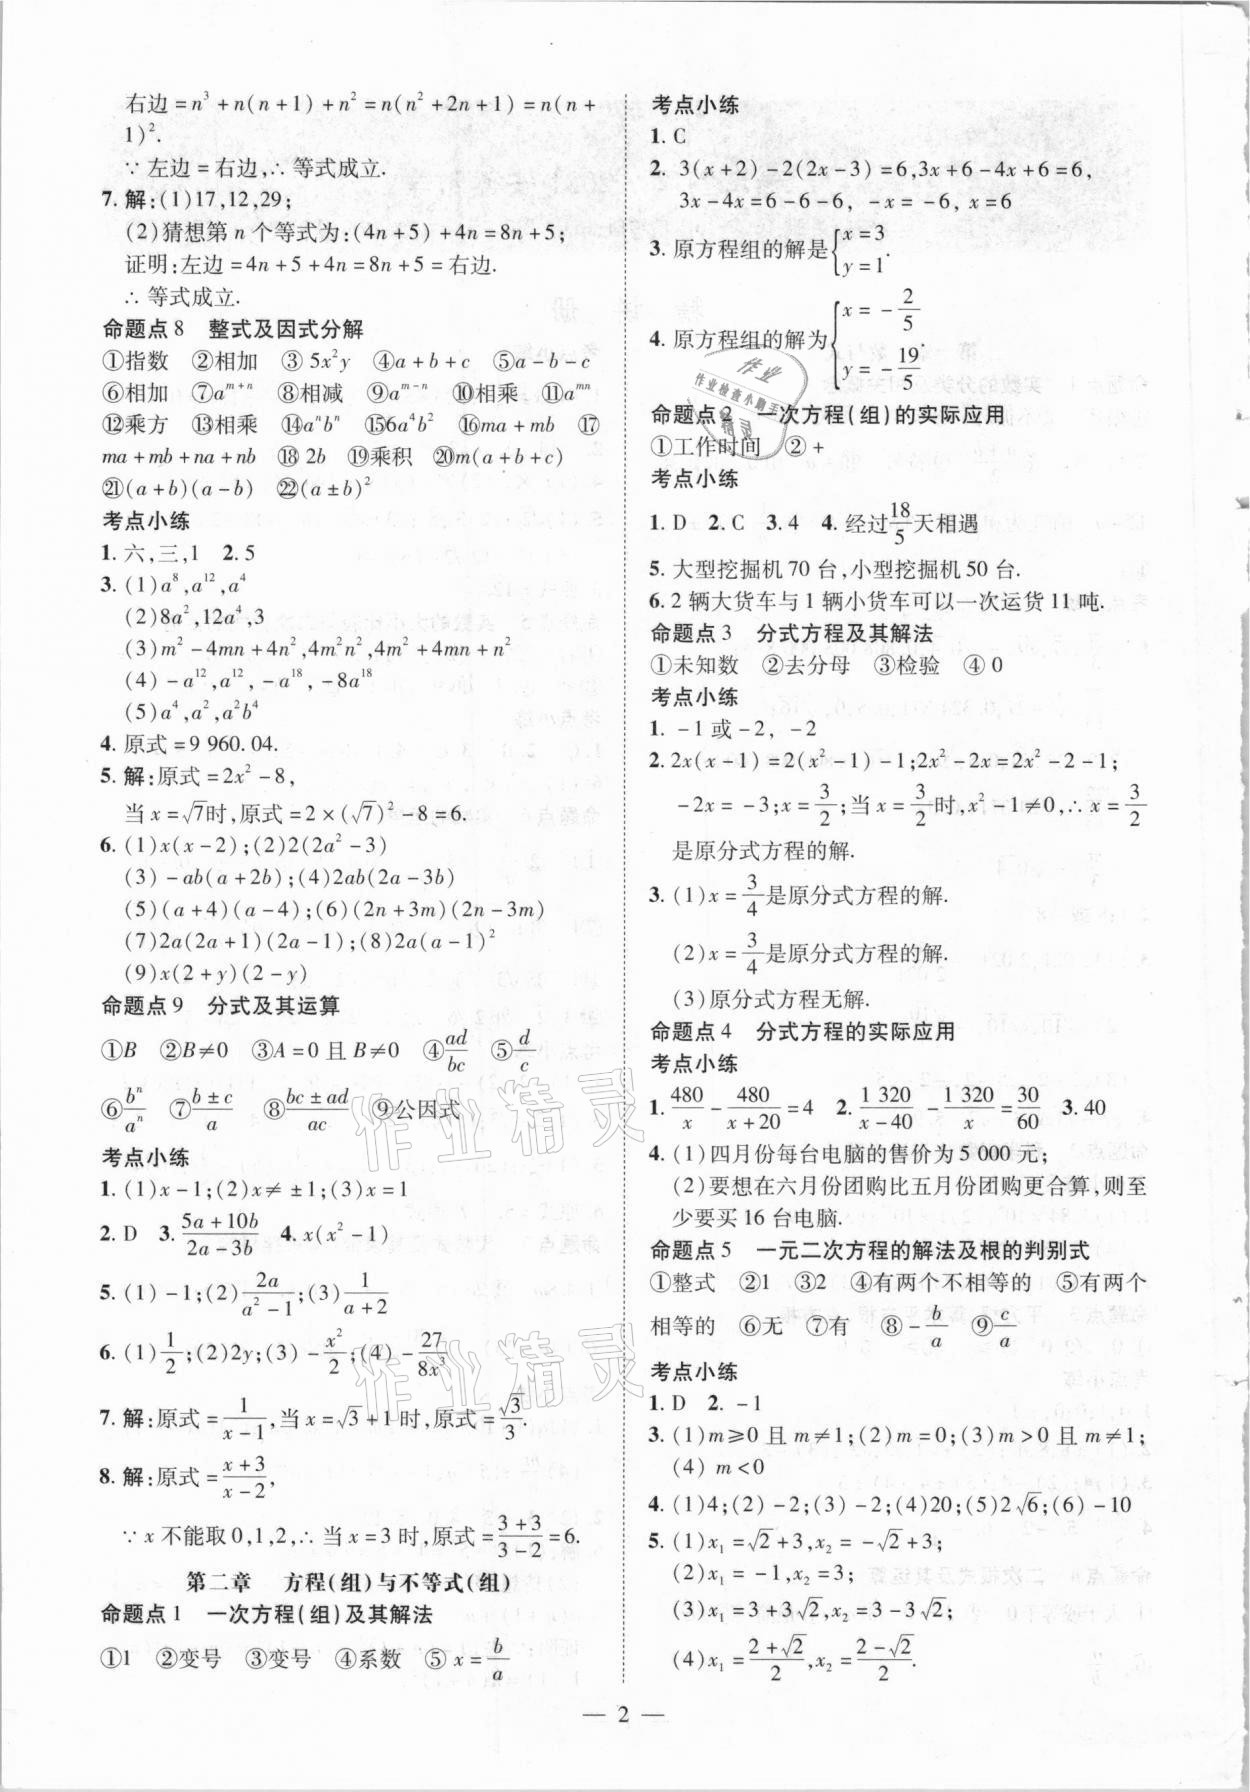 右边=n³+n(n+1)+n²=n(n²+2n+1)=n(n+
1)².
∵左边=右边,∴等式成立.
7. 解:(1)17,12,29;
(2)猜想第 n 个等式为:(4n+5)+4n=8n+5;
证明:左边=4n+5+4n=8n+5=右边.
∴等式成立.
命题点8 整式及因式分解
①指数 ②相加 ③5x²y ④a+b+c ⑤a-b-c
⑥相加 ⑦aᵐ⁺ⁿ ⑧相减 ⑨aᵐ⁻ⁿ ⑩相乘 ⑪aᵐⁿ
⑫乘方 ⑬相乘 ⑭aⁿbⁿ ⑮6a⁶b² ⑯ma+mb ⑰
ma+mb+na+nb ⑱2b ⑲乘积 ⑳m(a+b+c)
㉑(a+b)(a-b) ㉒(a±b)²
考点小练
1. 六,三,1 2. 5
3. (1)a⁸,a¹²,a⁴
(2)8a²,12a⁴,3
(3)m²-4mn+4n²,4m²n²,4m²+4mn+n²
(4)-a¹²,a¹²,-a¹⁸,-8a¹⁸
(5)a⁴,a²,a²b⁴
4. 原式=9 960.04.
5. 解:原式=2x²-8,
当x=√7时,原式=2×(√7)²-8=6.
6. (1)x(x-2);(2)2(2a²-3)
(3)-ab(a+2b);(4)2ab(2a-3b)
(5)(a+4)(a-4);(6)(2n+3m)(2n-3m)
(7)2a(2a+1)(2a-1);(8)2a(a-1)²
(9)x(2+y)(2-y)
命题点9 分式及其运算
①B ②B≠0 ③A=0 且 B≠0 ④ad/bc ⑤d/c
⑥bⁿ/aⁿ ⑦(b±c)/a ⑧(bc±ad)/ac ⑨公因式
考点小练
1. (1)x-1;(2)x≠±1;(3)x=1
2. D 3. (5a+10b)/(2a-3b) 4. x(x²-1)
5. (1)-1;(2)2a/(a²-1);(3)1/(a+2)
6. (1)1/2;(2)2y;(3)-x²/2;(4)-27/8x³
7. 解:原式=1/(x-1),当x=√3+1时,原式=√3/3.
8. 解:原式=(x+3)/(x-2),
∵x不能取0,1,2,∴当x=3时,原式=(3+3)/(3-2)=6.
第二章 方程(组)与不等式(组)
命题点1 一次方程(组)及其解法
①1 ②变号 ③变号 ④系数 ⑤x=b/a
考点小练
1. C
2. 3(x+2)-2(2x-3)=6,3x+6-4x+6=6,
3x-4x=6-6-6,-x=-6,x=6
3. 原方程组的解是{x=3 y=1.
4. 原方程组的解为{x=-2/5 y=-19/5.
命题点2 一次方程(组)的实际应用
①工作时间 ②+
考点小练
1. D 2. C 3. 4 4. 经过18/5天相遇
5. 大型挖掘机70台,小型挖掘机50台.
6. 2辆大货车与1辆小货车可以一次运货11吨.
命题点3 分式方程及其解法
①未知数 ②去分母 ③检验 ④0
考点小练
1. -1或-2,-2
2. 2x(x-1)=2(x²-1)-1;2x²-2x=2x²-2-1;
-2x=-3;x=3/2;当x=3/2时,x²-1≠0,∴x=3/2
是原分式方程的解.
3. (1)x=3/4是原分式方程的解.
(2)x=3/4是原分式方程的解.
(3)原分式方程无解.
命题点4 分式方程的实际应用
考点小练
1. 480/x-480/(x+20)=4 2. 1 320/(x-40)-1 320/x=30/60 3. 40
4. (1)四月份每台电脑的售价为5 000元;
(2)要想在六月份团购比五月份团购更合算,则至
少要买16台电脑.
命题点5 一元二次方程的解法及根的判别式
①整式 ②1 ③2 ④有两个不相等的 ⑤有两个
相等的 ⑥无 ⑦有 ⑧-b/a ⑨c/a
考点小练
1. D 2. -1
3. (1)m≥0且m≠1;(2)m=0;(3)m>0且m≠1;
(4)m<0
4. (1)4;(2)-2;(3)-2;(4)20;(5)2√6;(6)-10
5. (1)x₁=√2+3,x₂=-√2+3;
(2)x₁=-1,x₂=3;
(3)x₁=3+3√2,x₂=3-3√2;
(4)x₁=(2+√2)/2,x₂=(2-√2)/2.
— 2 —
作业
作业检查小助手
精灵
作业精灵
作业精灵